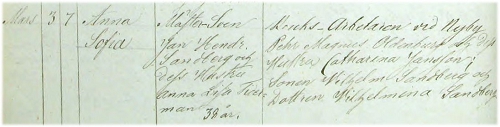 Mars 3 7 Anna
Sofia
Mäster-Sven
Jan Hendr.
Sandberg och
dess Hustru
Anna Lisa
man 38 år.
Kyrks-Arbetaren vid Nyby
Pehr Magnus och dess
Hustru Catharina Jansson;
Sonen Wilhelm Sandberg och
Dottren Wilhelmena Sandberg